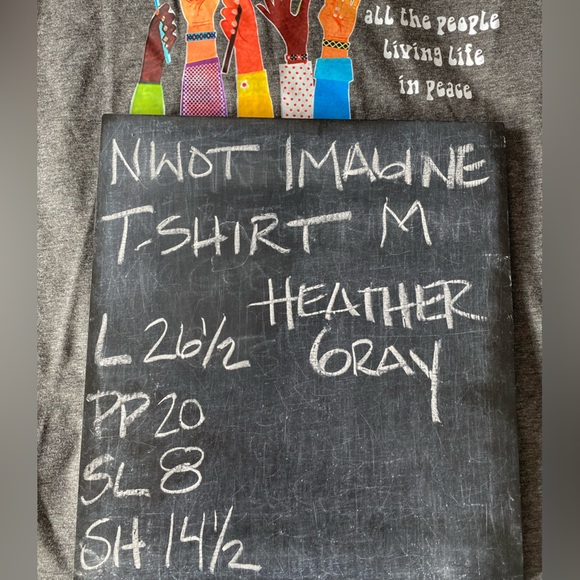 all the people
living life
in peace
NWOT IMAGINE
T-SHIRT M
HEATHER
GRAY
L 26 1/2
PP 20
SL 8
SH 14 1/2